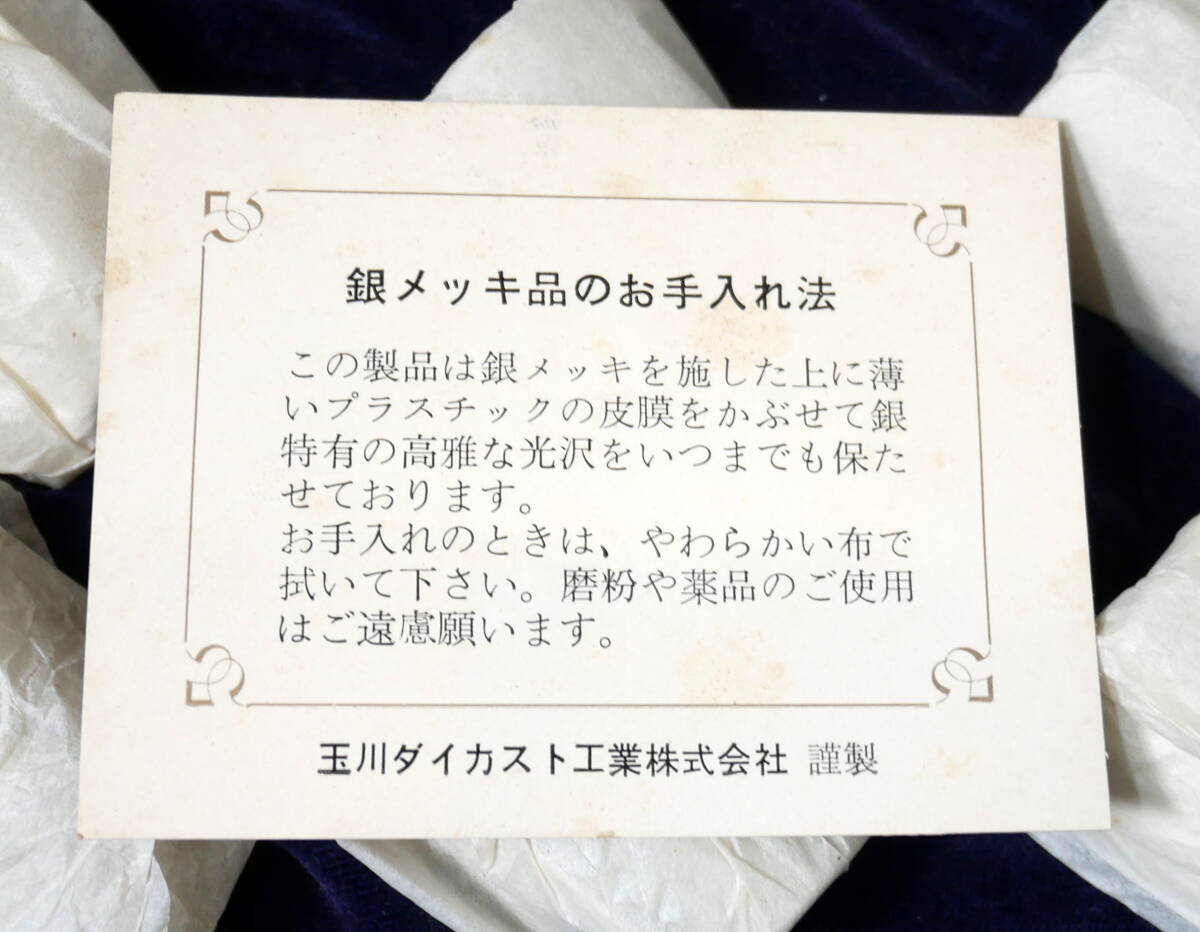 銀メッキ品のお手入れ法
この製品は銀メッキを施した上に薄
いプラスチックの皮膜をかぶせて銀
特有の高雅な光沢をいつまでも保た
せております。
お手入れのときは、やわらかい布で
拭いて下さい。磨粉や薬品のご使用
はご遠慮願います。
玉川ダイカスト工業株式会社 謹製